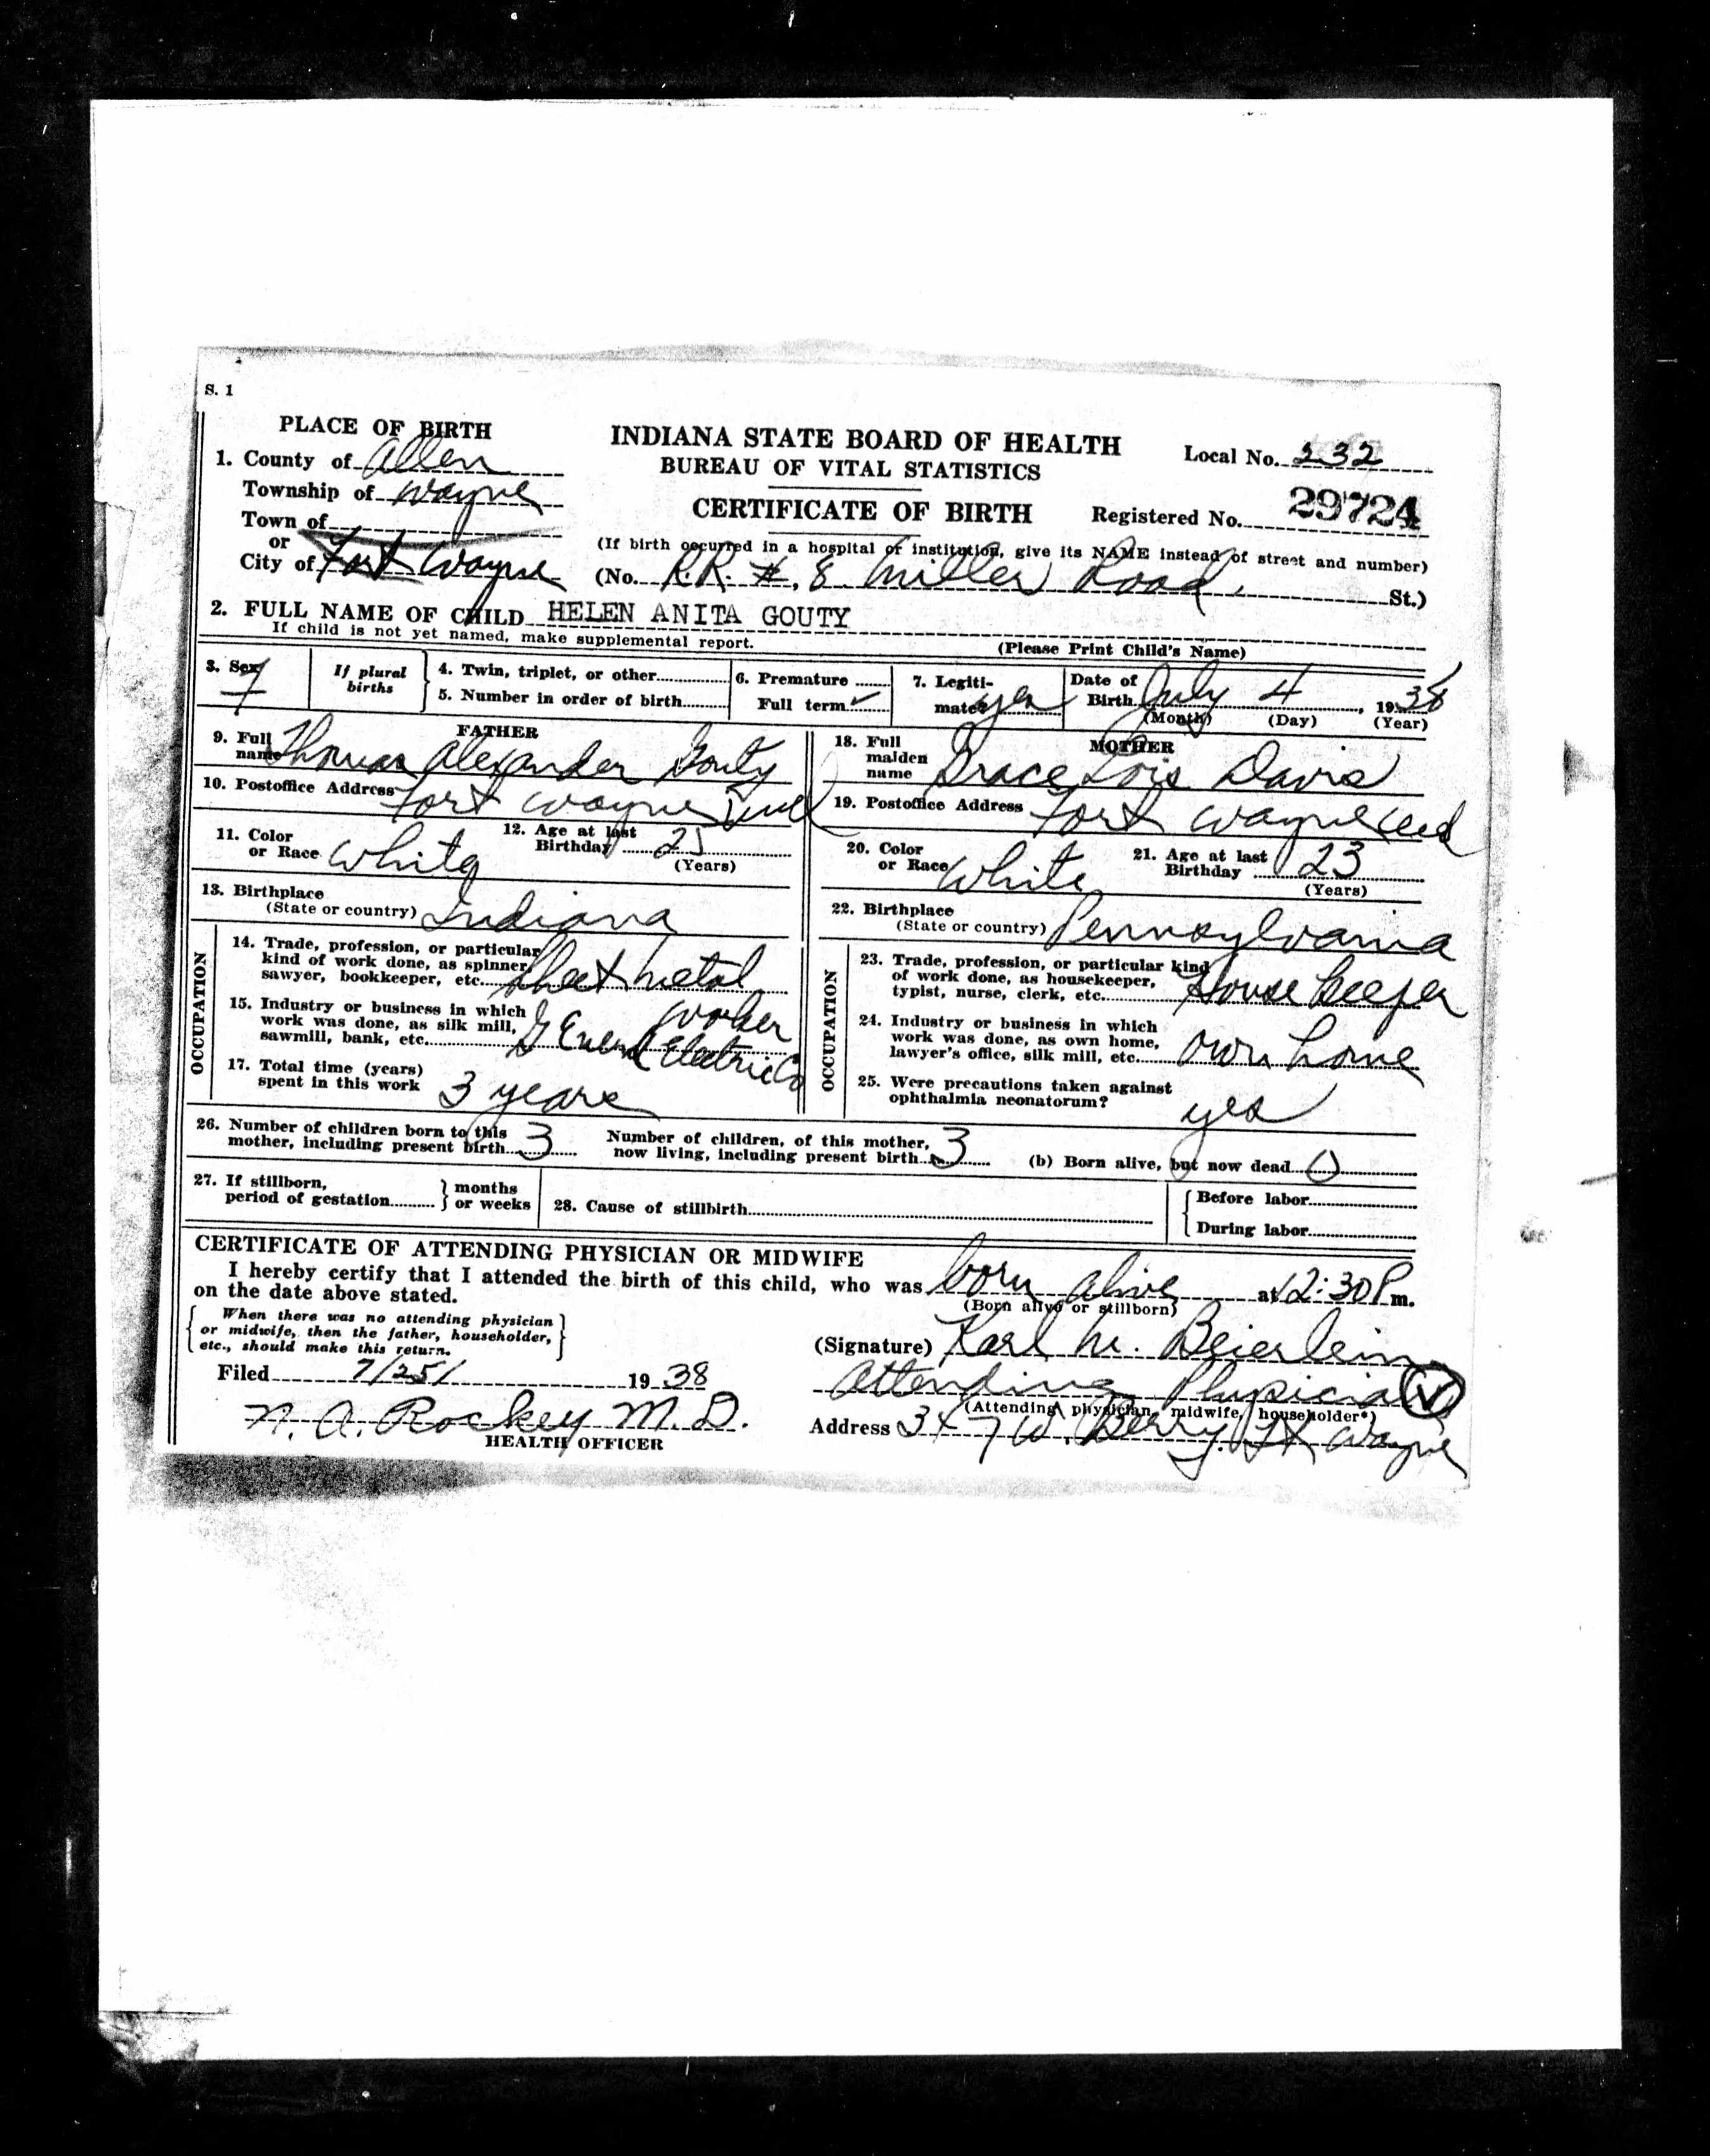 S. 1
PLACE OF BIRTH
1. County of Allen
Township of Wayne
Town of
or
City of Fort Wayne
INDIANA STATE BOARD OF HEALTH
BUREAU OF VITAL STATISTICS
CERTIFICATE OF BIRTH
Local No. 232
Registered No. 29724
(If birth occurred in a hospital or institution, give its NAME instead of street and number)
(No. R.R. #, 8 Miller Road, St.)
2. FULL NAME OF CHILD HELEN ANITA GOUTY
If child is not yet named, make supplemental report. (Please Print Child's Name)
3. Sex F
If plural births
4. Twin, triplet, or other
5. Number in order of birth
6. Premature
Full term ✓
7. Legitimate? yes
Date of Birth July 4, 1938
(Month) (Day) (Year)
FATHER
9. Full name Thomas Alexander Gouty
10. Postoffice Address Fort Wayne Ind
11. Color or Race White
12. Age at last Birthday 25 (Years)
13. Birthplace (State or country) Indiana
OCCUPATION
14. Trade, profession, or particular kind of work done, as spinner, sawyer, bookkeeper, etc. sheet metal worker
15. Industry or business in which work was done, as silk mill, sawmill, bank, etc. General Electric Co
17. Total time (years) spent in this work 3 years
MOTHER
18. Full maiden name Grace Lois Davis
19. Postoffice Address Fort Wayne Ind
20. Color or Race White
21. Age at last Birthday 23 (Years)
22. Birthplace (State or country) Pennsylvania
OCCUPATION
23. Trade, profession, or particular kind of work done, as housekeeper, typist, nurse, clerk, etc. House Keeper
24. Industry or business in which work was done, as own home, lawyer's office, silk mill, etc. own home
25. Were precautions taken against ophthalmia neonatorum? yes
26. Number of children born to this mother, including present birth 3
Number of children, of this mother, now living, including present birth 3
(b) Born alive, but now dead 0
27. If stillborn, period of gestation months or weeks
28. Cause of stillbirth
Before labor
During labor
CERTIFICATE OF ATTENDING PHYSICIAN OR MIDWIFE
I hereby certify that I attended the birth of this child, who was born alive at 12:30 P m.
on the date above stated. (Born alive or stillborn)
When there was no attending physician
or midwife, then the father, householder,
etc., should make this return.
(Signature) Karl M. Beierlein
Attending Physician
(Attending physician, midwife, householder*)
Filed 7/25/ 1938
N. A. Rockey M.D.
HEALTH OFFICER
Address 347 W. Berry. Ft Wayne